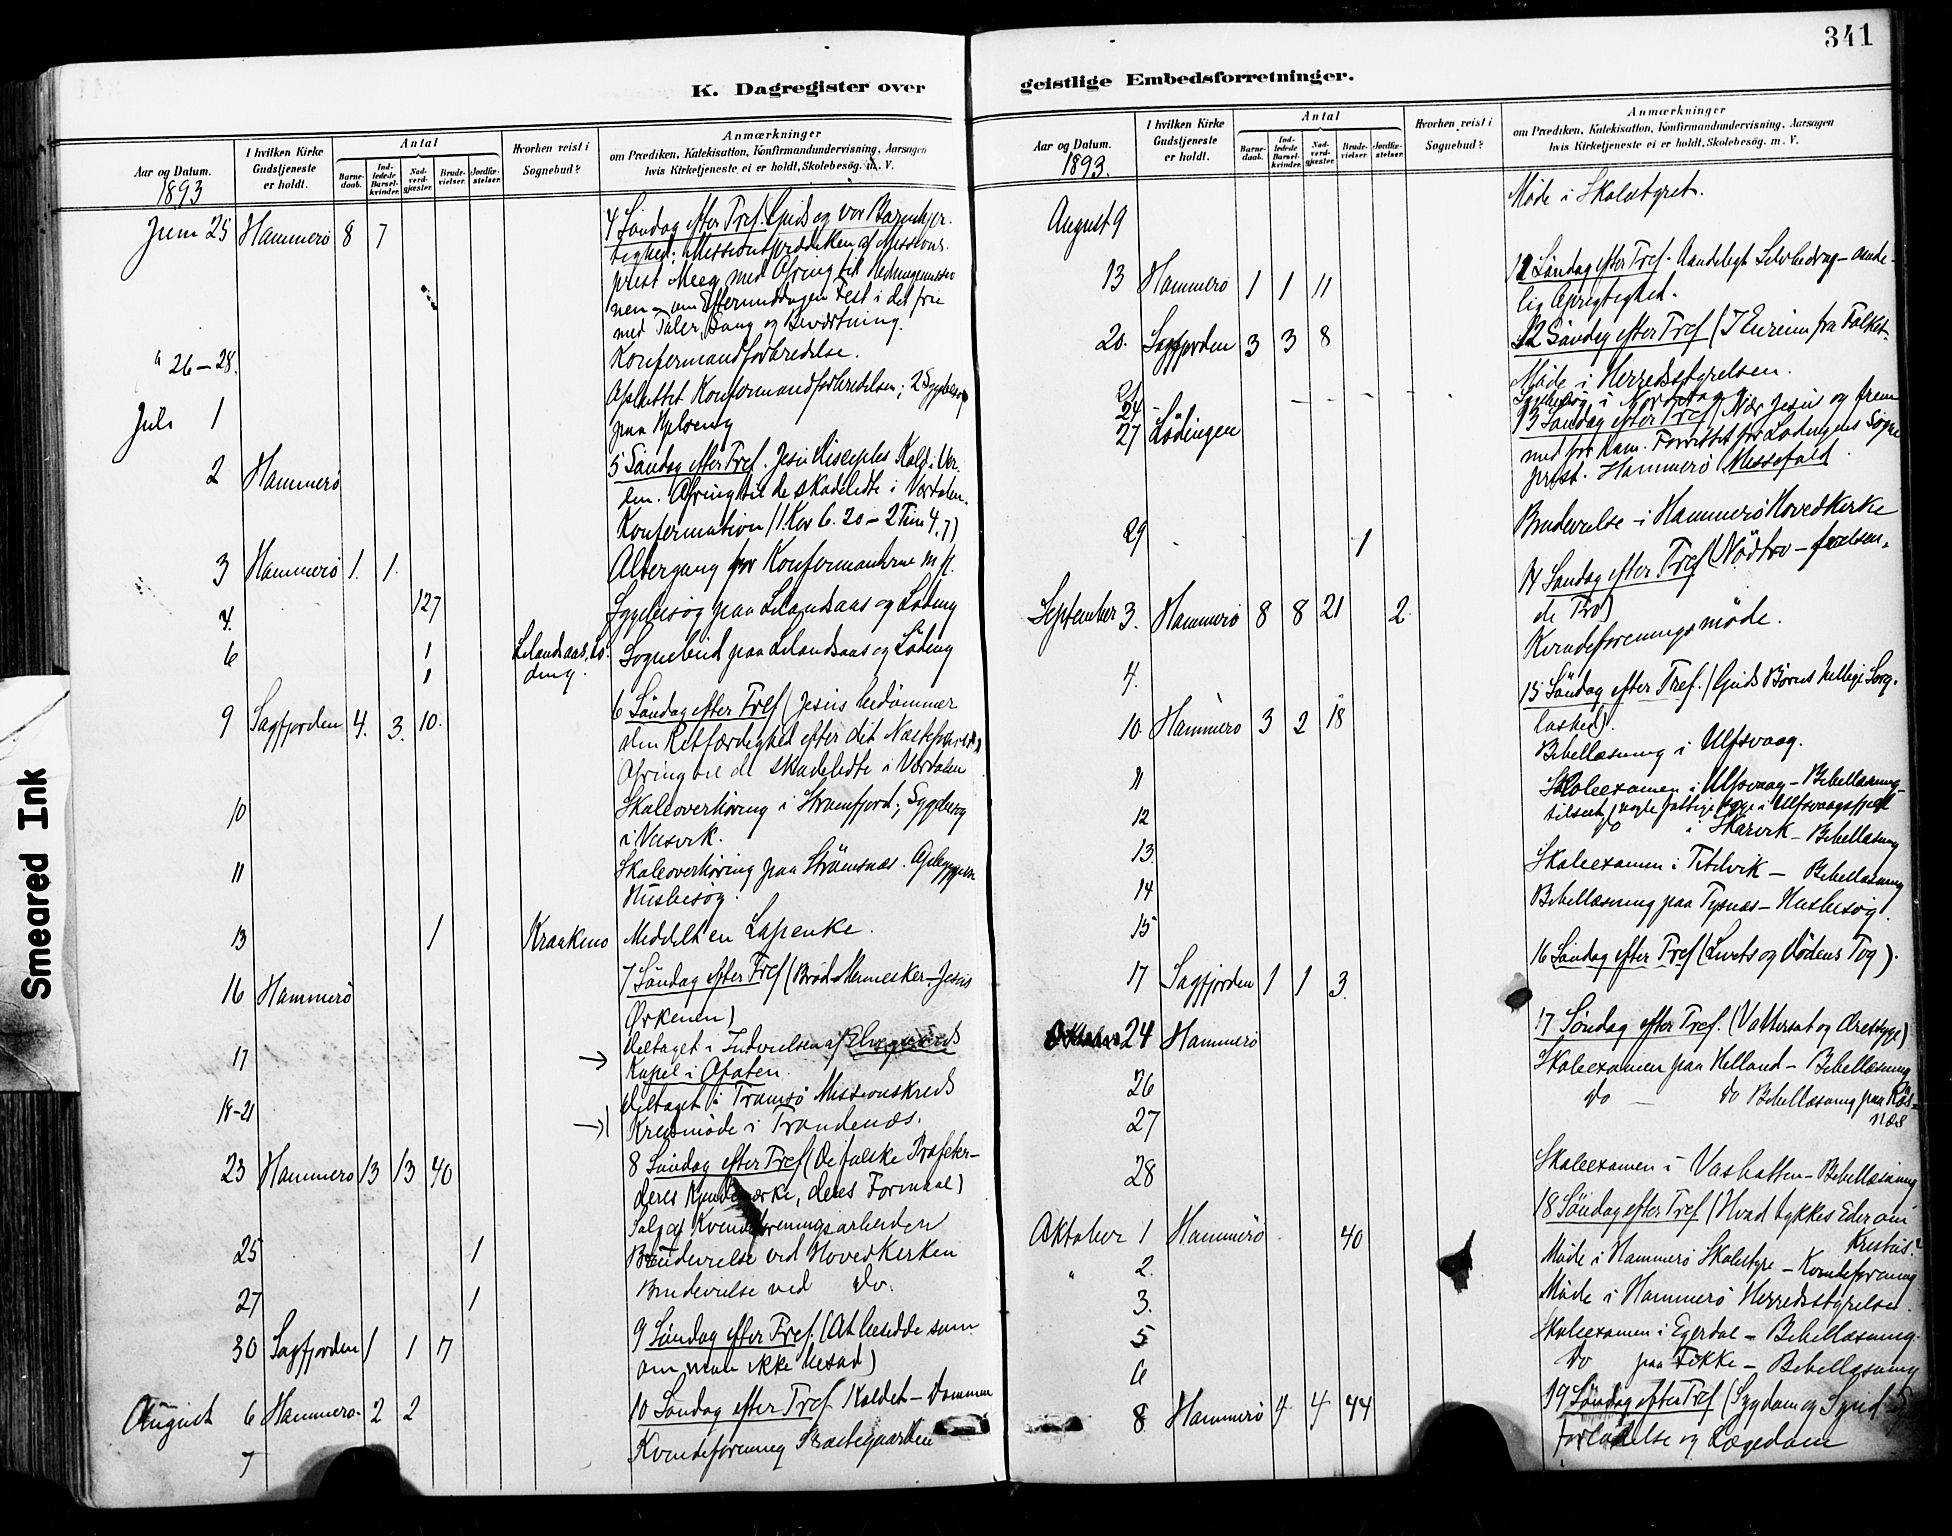 341
K. Dagregister over
geistlige Embedsforretninger.
Aar og Datum.
1893
I hvilken Kirke
Gudstjeneste
er holdt.
Antal
Barne-
daab.
Ind-
ledede
Barsel-
kvinder.
Nad-
verd-
gjæster.
Brude-
vielser.
Jordfæ-
stelser.
Hvorhen reist i
Sognebud?
Anmærkninger
om Prædiken, Katekisation, Konfirmandundervisning, Aarsagen
hvis Kirketjeneste ei er holdt, Skolebesög. m. V.
Juni 25 Hammerö 8 7 4 Söndag efter Tref. Guds og vor Barmhjer-
tighed; Missionsprædiken af Missions-
prest Meeg med Ofring til Hedningemissio
nen – om Eftermiddagen Fest i det frie
med Taler, Sang og Bevertning.
" 26 – 28. Konfirmandforberedelse.
Juli 1 Afsluttet Konfirmandforberedelsen; 2 Sygebesög
paa
2 Hammerö 5 Söndag efter Tref. Jesu Disciples Kald i Ver-
den. Ofring til de skadelidte i Værdalen.
Konfirmation (1 Kor 6. 20 – 2 Tim 4. 7)
3 Hammerö 1. 1. Altergang for Konfirmanderne m fl.
4. 127 Sygebesög paa Lilandsaas og Löding
6 1 Lilandsaas, Lö- Sognebud paa Lilandsaas og Löding
1 ding.
9 Sagfjorden 4. 3. 10. 6 Söndag efter Tref (Jesus bedömmer
din Retfærdighed efter dit
Ofring til de skadelidte i Værdalen
10 Skoleoverhöring i Strumfjord; Sygebesög
i Vasvik.
11 Skoleoverhöring paa Strömsnæs.
Husbesög.
13 1 Kraakmo Meddelt en
16 Hammerö 7 Söndag efter Tref (Bröd – Mennesker – Jesus
Ørkenen)
17 Deltaget i Indvielsen af Elvegaards
Kapel i Ofoten.
18–21 Deltaget i Tromsö Missionskreds
Kredsmöde i Trondenæs.
23 Hammerö 13 13 40 8 Söndag efter Tref (De falske Profeter –
deres Kjendemærke, deres Formaal)
Salg af Kvindeforeningsarbeiden
25 1 Brudevielse ved Hovedkirken
27 1 Brudevielse ved do.
30 Sagfjorden 1 1 7 9 Söndag efter Tref. (At besidde som
om man ikke besad)
August 6 Hammerö. 2 2 10 Söndag efter Tref. Kaldet – Dommen
7 Kvindeforening Prestegaarden
Aar og Datum.
1893.
I hvilken Kirke
Gudstjeneste
er holdt.
Antal
Barne-
daab.
Ind-
ledede
Barsel-
kvinder.
Nad-
verd-
gjæster.
Brude-
vielser.
Jordfæ-
stelser.
Hvorhen reist i
Sognebud?
Anmærkninger
om Prædiken, Katekisation, Konfirmandundervisning, Aarsagen
hvis Kirketjeneste ei er holdt, Skolebesög. m. V.
August 9 Möde i Skolestyret.
13 Hammerö 1 1 11 11 Söndag efter Tref. Aandeligt Selvbedrag – aande-
lig Oprigtighed.
20. Sagfjorden 3 3 8 12 Söndag efter Tref (I Enrum fra Folket-
Möde i Herredsstyrelsen.
24 Sygebesög i
27 Lödingen 13 Söndag efter Tref (Nær Jesus og frem
med for ham. Forrettet for Lödingens Sogne
prest. Hammerö Messefald.
29 1 Brudevielse i Hammerö Hovedkirke
September 3. Hammerö 8 8 21 2 14 Söndag efter Tref (Nödtro – frelsen-
de Tro)
4. Kvindeforeningsmöde.
10. Hammerö 3 2 18 15 Söndag efter Tref. (Guds Börns hellige Sorg-
löshed).
11 Bibellæsning i Ulfsvaag.
12 Skoleexamen i Ulfsvaag – Bibellæsning –
tilseet nogle fattige syge i Ulfsvaagfjeld
13. do i Skarvik – Bibellæsning
14 Skoleexamen i Titelvik – Bibellæsning
15 Bibellæsning paa Tysnæs – Husbesög.
17 Sagfjorden 1 1 3. 16 Söndag efter Tref (Livets og Dödens Tog).
24 Hammerö 17 Söndag efter Tref. (Vattersot og Æresyge)
26 Skoleexamen paa Helland – Bibellæsning
27 do – do Bibellæsning paa Kös-
næs
28 Skoleexamen i Vashatten – Bibellæsning
Oktober 1 Hammerö 40 18 Söndag efter Tref (Hvad tykkes Eder om
Kristus?
" 2. Möde i Hammerö Skolestyre – Kvindeforening
3. Möde i Hammerö Herredsstyrelse.
5 Skoleexamen i Egerdal – Bibellæsning.
6 do paa Fikke – Bibellæsning
8 Hammerö 4 4 44 19 Söndag efter Tref (Sygdom og Synd
Forladelse og Lægedom
Smeared Ink